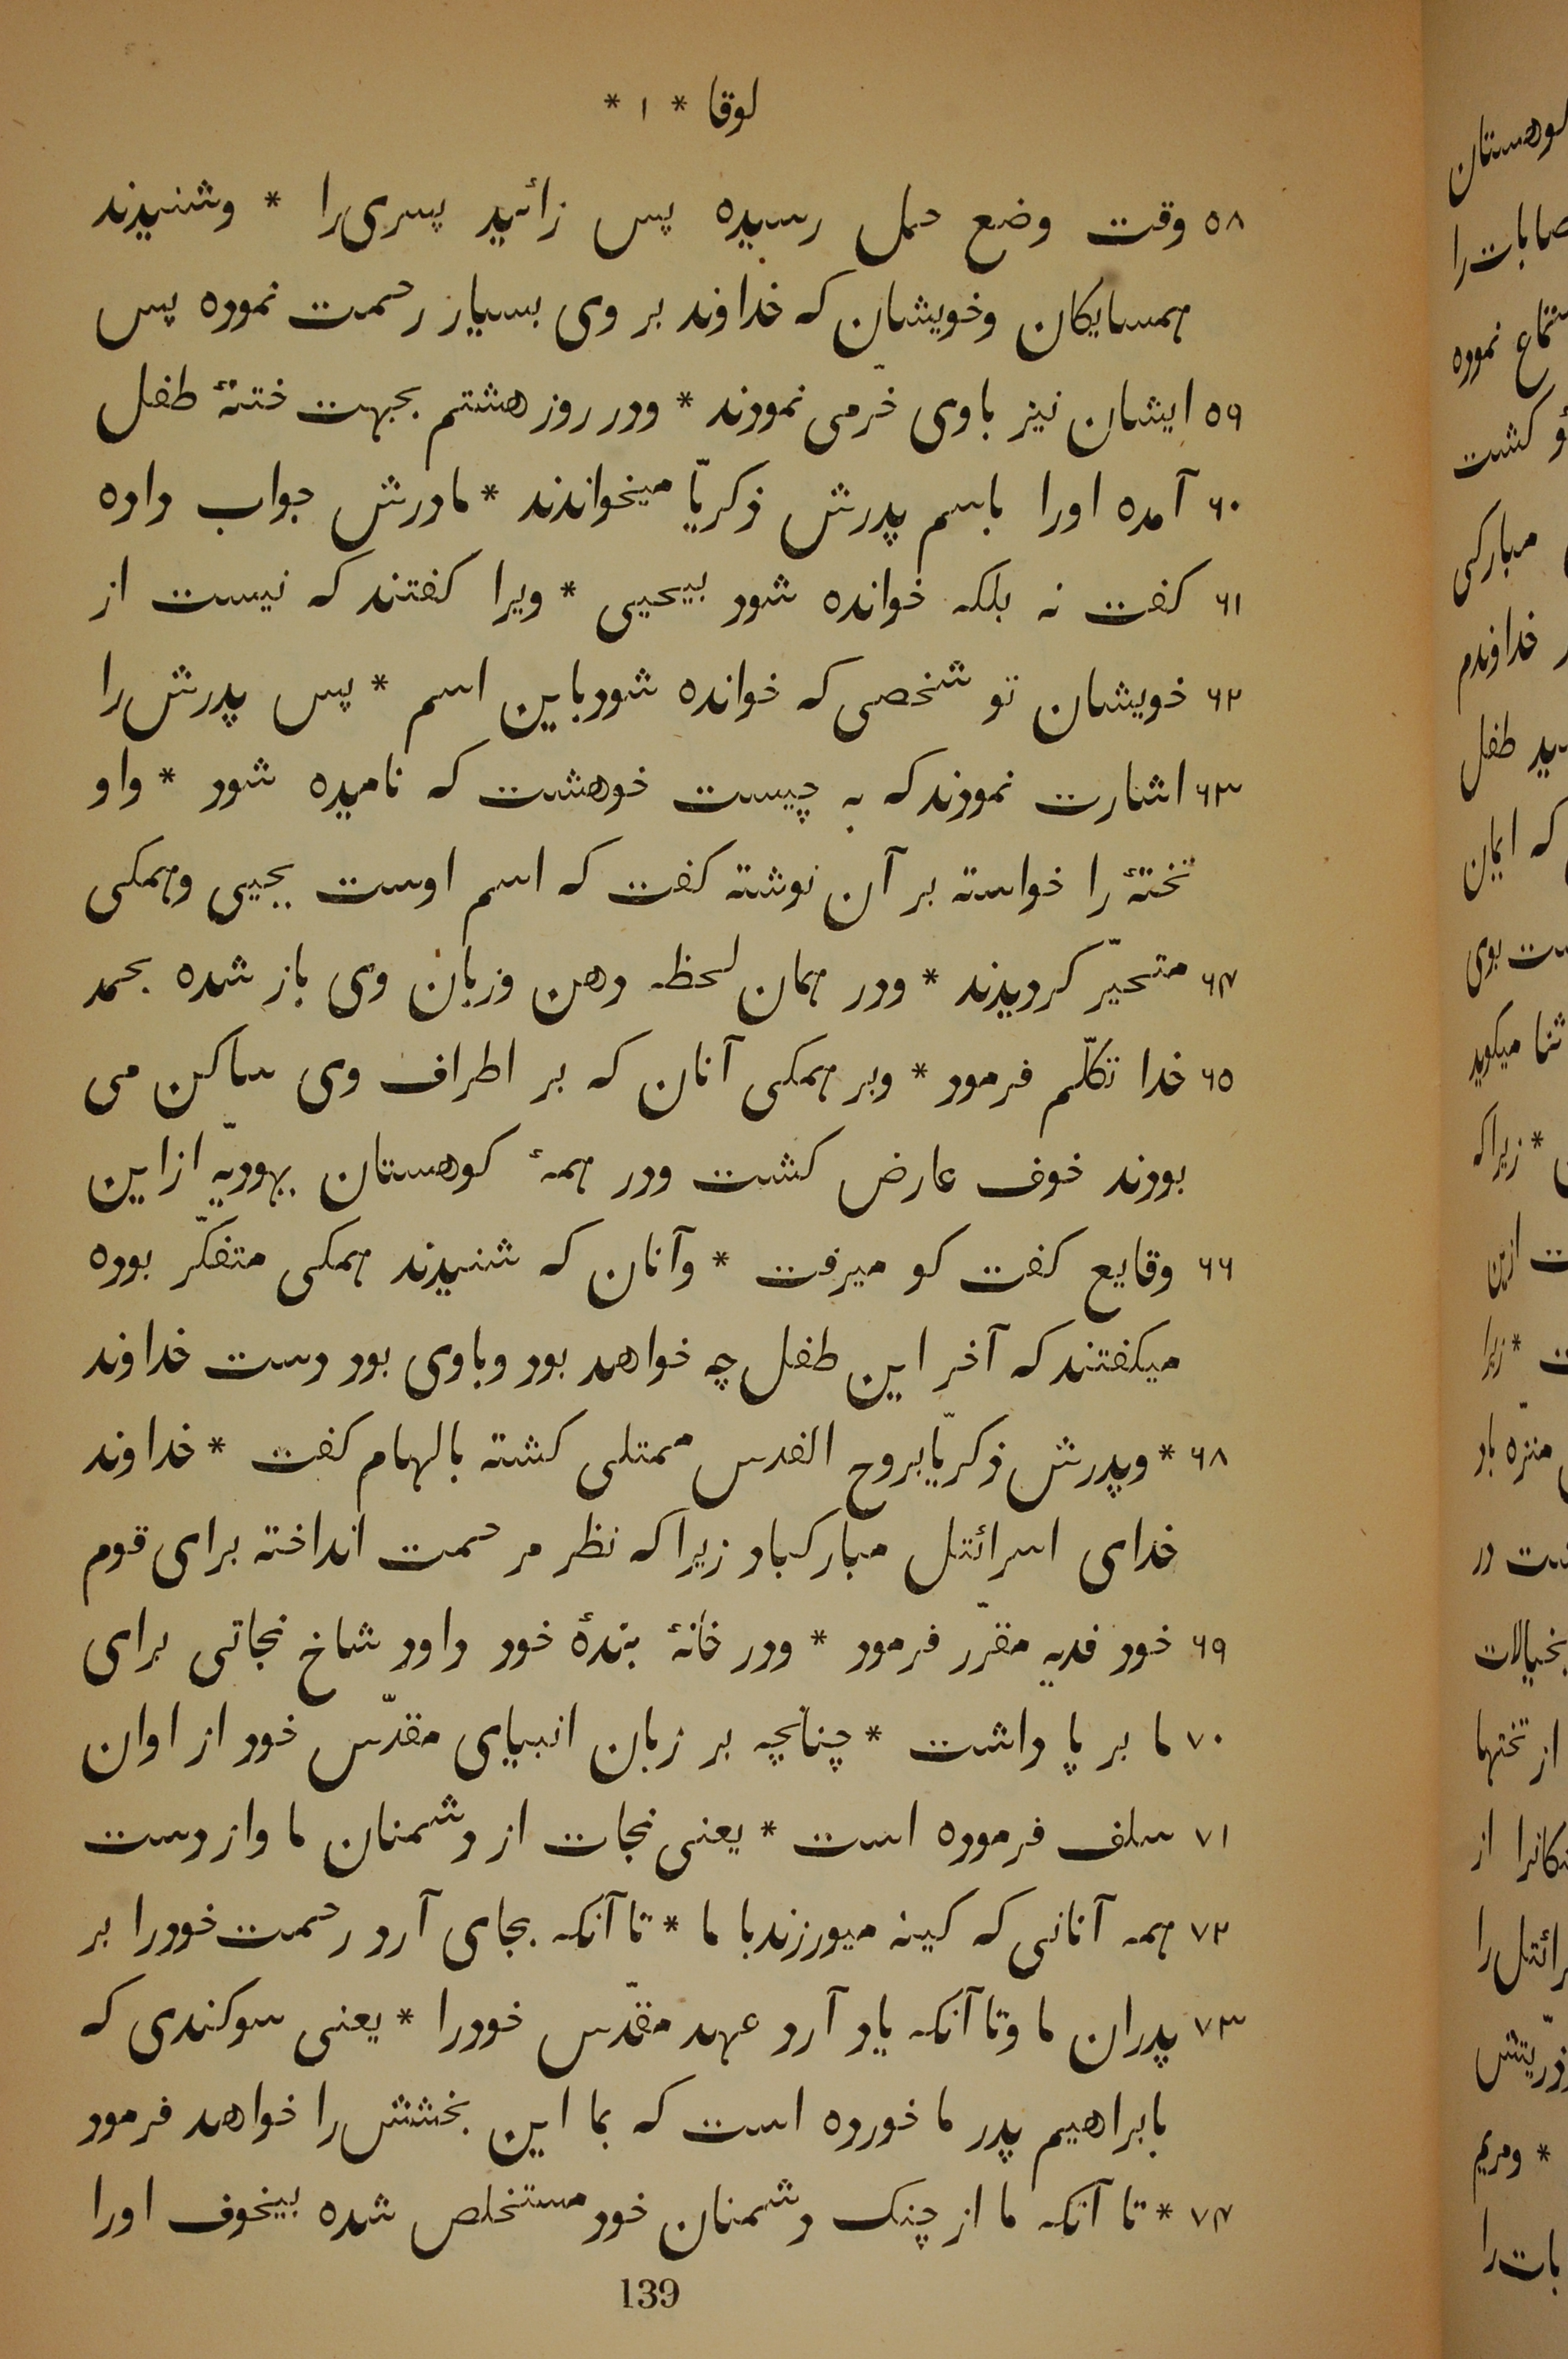 لوقا * ۱ *
۵۸ وقت وضع حمل رسیده پس زائید پسری‌را * وشنیدند
همسایکان وخویشان که خداوند بر وی بسیار رحمت نموده پس
۵۹ ایشان نیز باوی خرّمی نمودند * ودر روز هشتم بجهت ختنهٔ طفل
۶۰ آمده اورا باسم پدرش ذکریّا میخواندند * مادرش جواب داده
۶۱ کفت نه بلکه خوانده شود بیحیی * ویرا کفتند که نیست از
۶۲ خویشان تو شخصی که خوانده شود باین اسم * پس پدرش را
۶۳ اشارت نمودند که به چیست خوهشت که نامیده شود * واو
تختهٔ را خواسته بر آن نوشته کفت که اسم اوست یحیی وهمکی
۶۴ متحیّر کردیدند * ودر همان لحظه دهن وزبان وی باز شده بحمد
۶۵ خدا تکلّم فرمود * وبر همکی آنان که بر اطراف وی ساکن می
بودند خوف عارض کشت ودر همهٔ کوهستان یهودیّه ازاین
۶۶ وقایع کفت کو میرفت * وآنان که شنیدند همکی متفکّر بوده
میکفتند که آخر این طفل چه خواهد بود وباوی بود دست خداوند
۶۸ * وپدرش ذکریّا بروح القدس ممتلی کشته بالهام کفت * خداوند
خدای اسرائتل مبارکباد زیرا که نظر مرحمت انداخته برای قوم
۶۹ خود فدیه مقرّر فرمود * ودر خانهٔ بندهٔ خود داود شاخ نجاتی برای
۷۰ ما بر پا داشت * چنانچه بر زبان انبیای مقدّس خود از اوان
۷۱ سلف فرموده است * یعنی نجات از دشمنان ما واز دست
۷۲ همه آنانی که کینه میورزند با ما * تا آنکه بجای آرد رحمت خودرا بر
۷۳ پدران ما وتا آنکه یاد آرد عهد مقدّس خودرا * یعنی سوکندی که
بابراهیم پدر ما خورده است که بما این بخشش را خواهد فرمود
۷۴ * تا آنکه ما از چنک دشمنان خود مستخلص شده بیخوف اورا
139
کوهستان
نموده
کشت
مبارکی
خداوندم
طفل
که ایمان
بوی
ثنا میکوید
* زیرا که
ازین
* زیرا
منزّه باد
در
بخیالات
از تختها
از
را
* ومریم
را